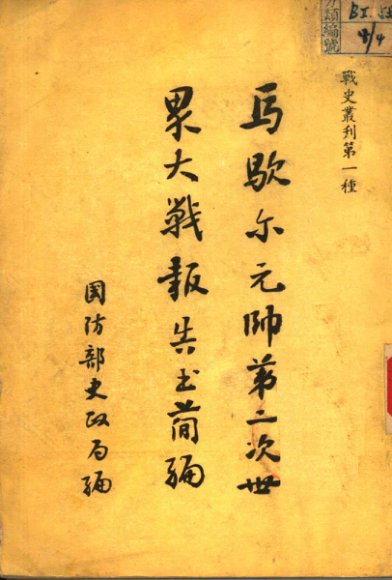 類編號
戰史叢刊第一種
馬歇尔元帥第二次世
界大戰報告书簡編
国防部史政局編